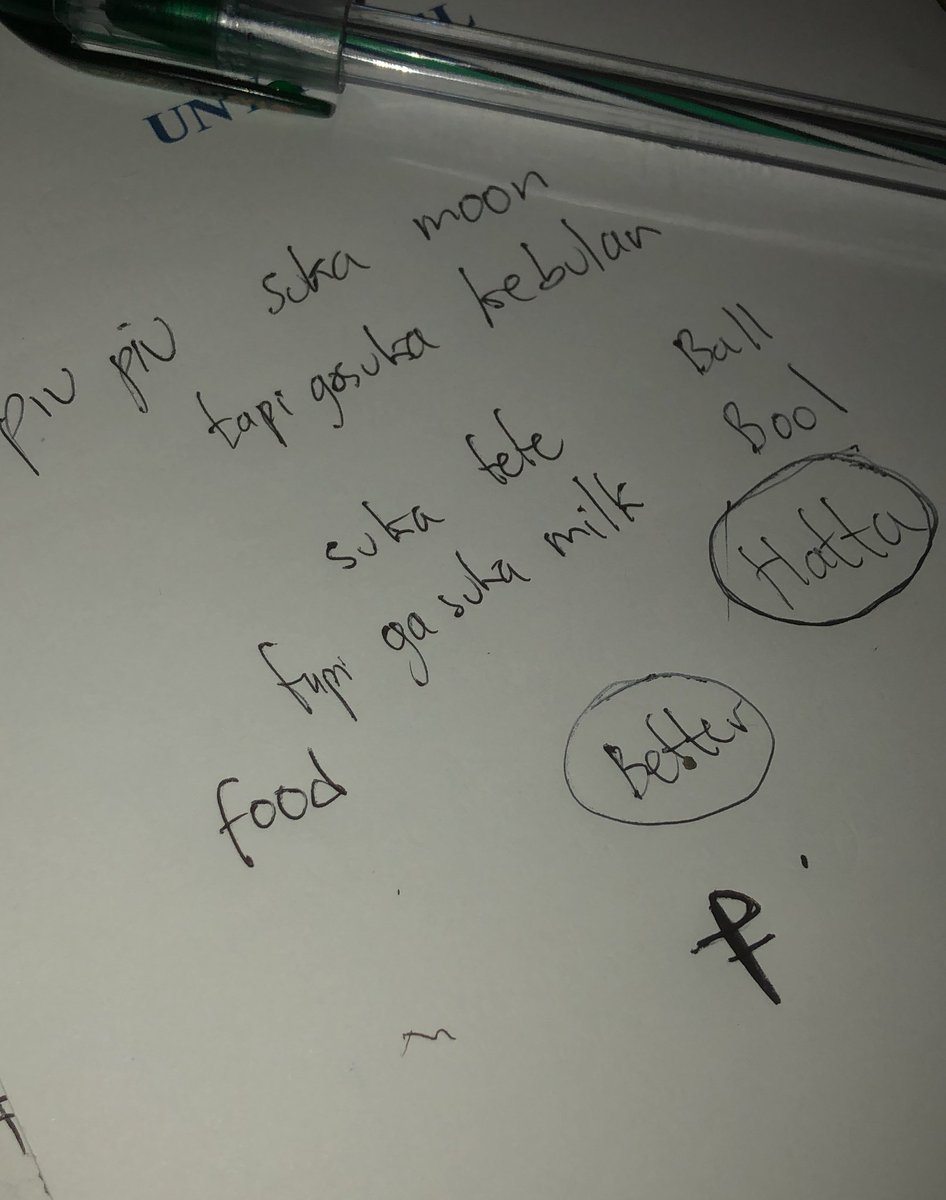 piu piu suka moon
tapi gasuka kebulan
suka tete
tapi ga suka milk
food
Ball
Bool
Hatta
Better